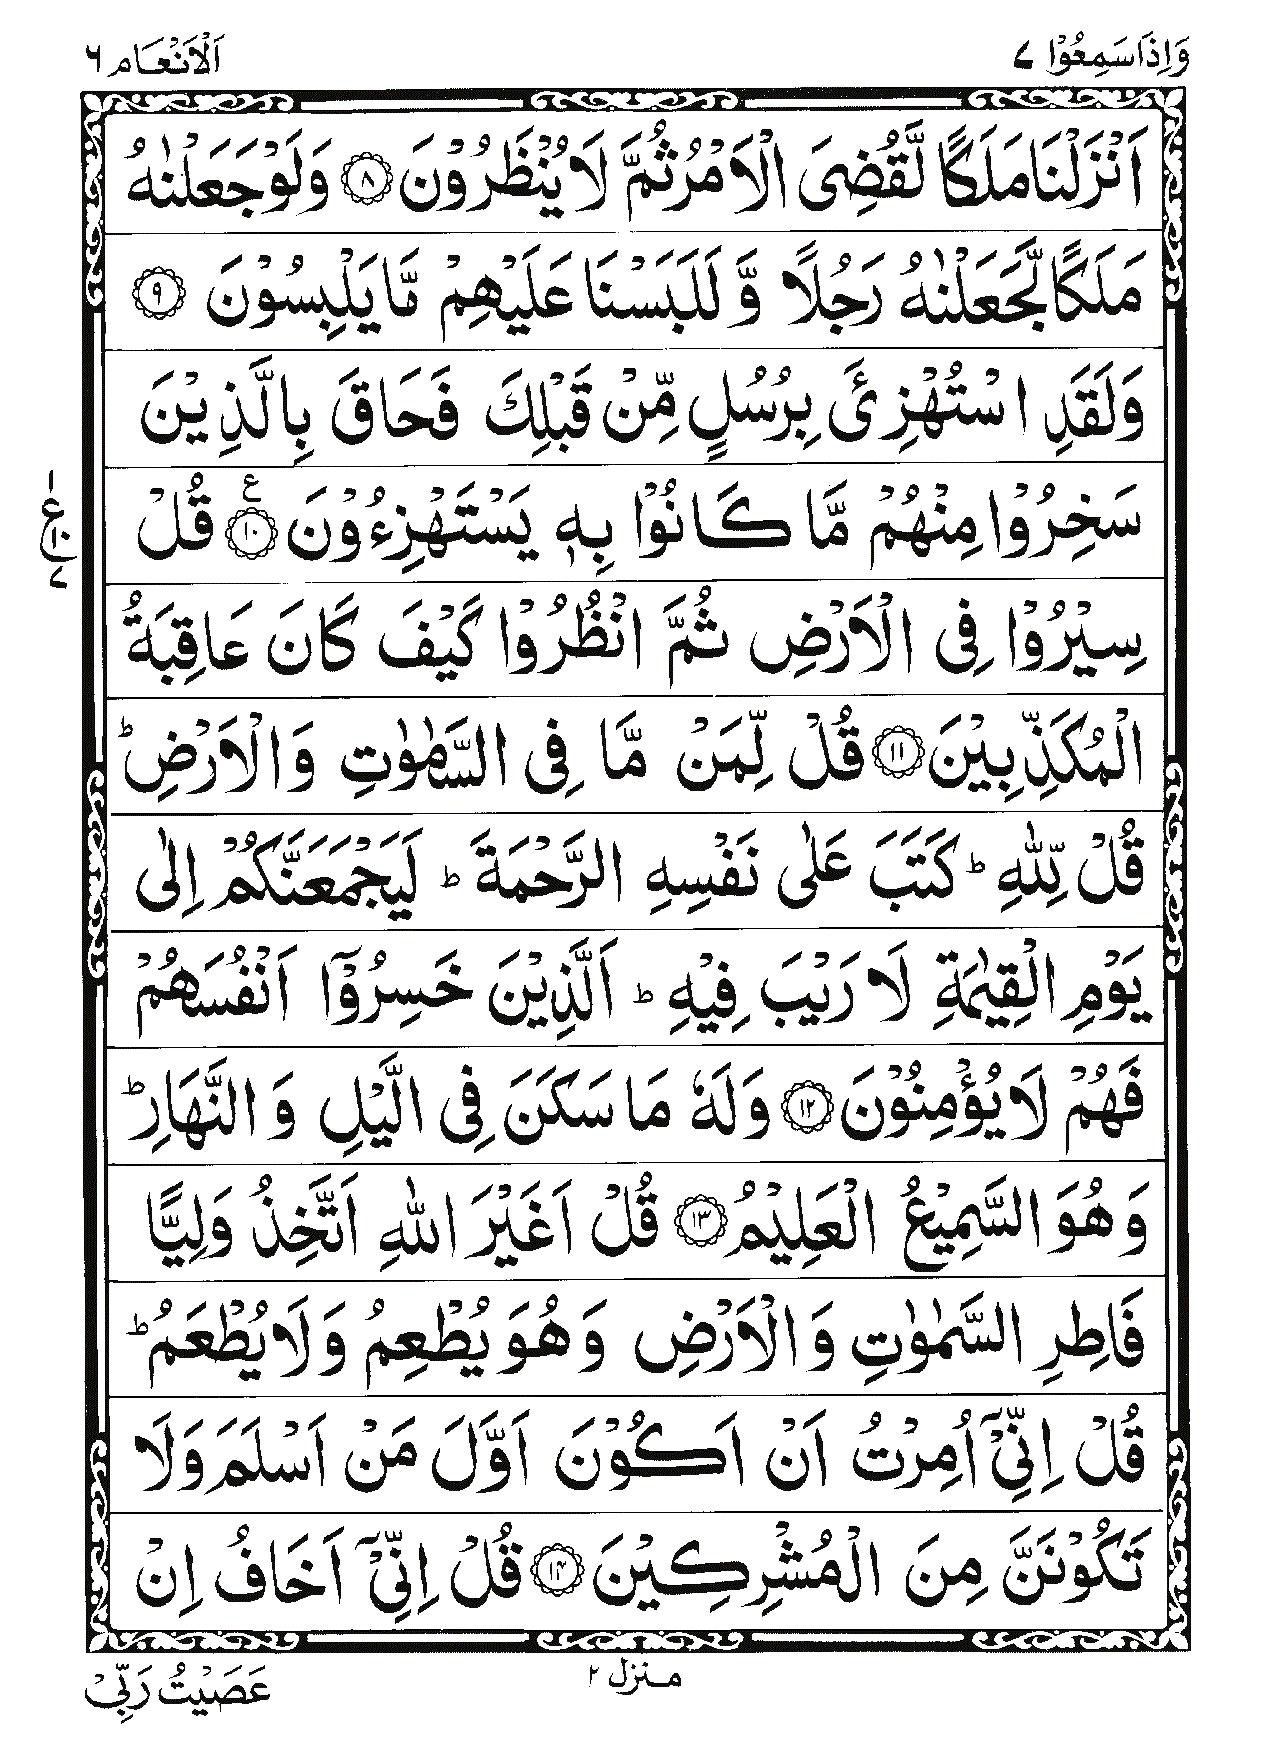 وَاِذَا سَمِعُوْا ۷
اَلْاَنْعَام ۶
اَنْزَلْنَا مَلَكًا لَّقُضِیَ الْاَمْرُ ثُمَّ لَا یُنْظَرُوْنَ ۝۸ وَلَوْ جَعَلْنٰهُ
مَلَكًا لَّجَعَلْنٰهُ رَجُلًا وَّ لَلَبَسْنَا عَلَیْهِمْ مَّا یَلْبِسُوْنَ ۝۹
وَلَقَدِ اسْتُهْزِئَ بِرُسُلٍ مِّنْ قَبْلِكَ فَحَاقَ بِالَّذِیْنَ
سَخِرُوْا مِنْهُمْ مَّا كَانُوْا بِهٖ یَسْتَهْزِءُوْنَ ۝۱۰ ع قُلْ
۱ ع ۱۰ ۷
سِیْرُوْا فِی الْاَرْضِ ثُمَّ انْظُرُوْا كَیْفَ كَانَ عَاقِبَةُ
الْمُكَذِّبِیْنَ ۝۱۱ قُلْ لِّمَنْ مَّا فِی السَّمٰوٰتِ وَالْاَرْضِ ؕ
قُلْ لِّلّٰهِ ؕ كَتَبَ عَلٰی نَفْسِهِ الرَّحْمَةَ ؕ لَیَجْمَعَنَّكُمْ اِلٰی
یَوْمِ الْقِیٰمَةِ لَا رَیْبَ فِیْهِ ؕ اَلَّذِیْنَ خَسِرُوْۤا اَنْفُسَهُمْ
فَهُمْ لَا یُؤْمِنُوْنَ ۝۱۲ وَلَهٗ مَا سَكَنَ فِی الَّیْلِ وَ النَّهَارِ ؕ
وَ هُوَ السَّمِیْعُ الْعَلِیْمُ ۝۱۳ قُلْ اَغَیْرَ اللّٰهِ اَتَّخِذُ وَلِیًّا
فَاطِرِ السَّمٰوٰتِ وَ الْاَرْضِ وَ هُوَ یُطْعِمُ وَ لَا یُطْعَمُ ؕ
قُلْ اِنِّیْۤ اُمِرْتُ اَنْ اَكُوْنَ اَوَّلَ مَنْ اَسْلَمَ وَلَا
تَكُوْنَنَّ مِنَ الْمُشْرِكِیْنَ ۝۱۴ قُلْ اِنِّیْۤ اَخَافُ اِنْ
منزل ۲
عَصَیْتُ رَبِّیْ